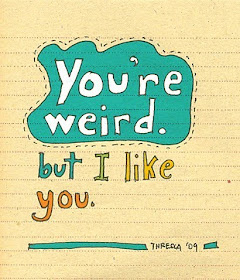 You're
weird.
but I like
you.
THREDCA '09